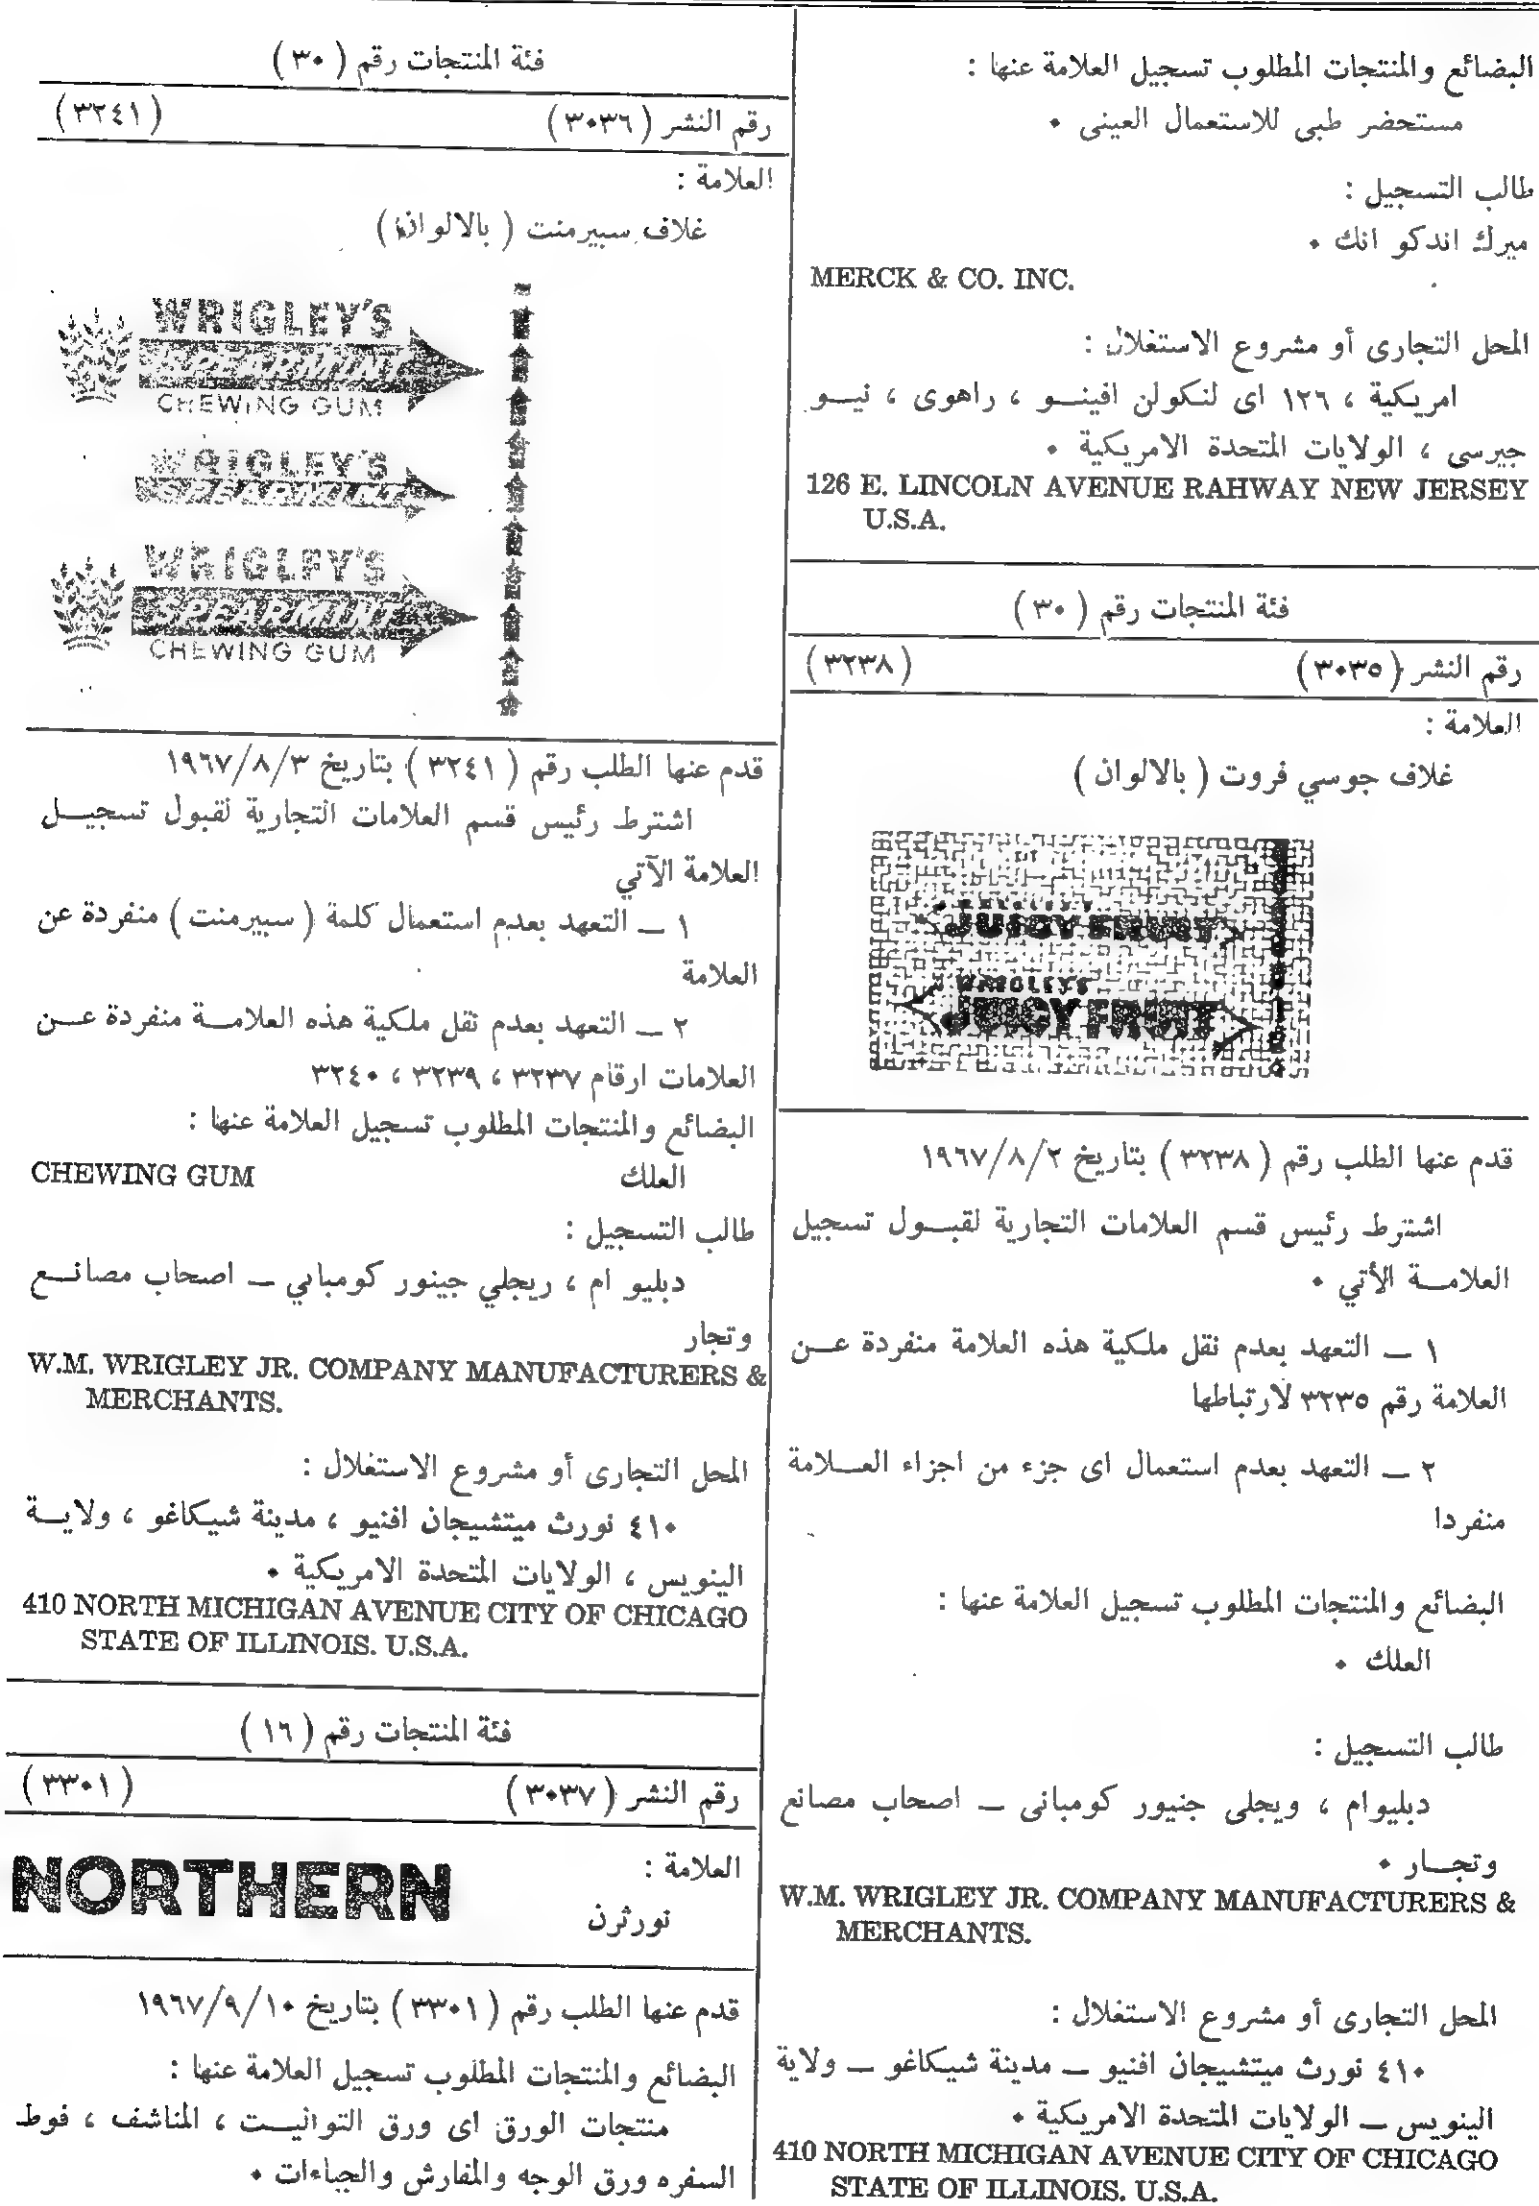 البضائع والمنتجات المطلوب تسجيل العلامة عنها :
مستحضر طبى للاستعمال العينى ٠
طالب التسجيل :
ميرك اندكو انك ٠
MERCK & CO. INC.
المحل التجارى أو مشروع الاستغلال :
امريكية ، ١٢٦ اى لنكولن افينـــو ، راهوى ، نيـــو
جيرسى ، الولايات المتحدة الامريكية ٠
126 E. LINCOLN AVENUE RAHWAY NEW JERSEY
U.S.A.
فئة المنتجات رقم ( ٣٠ )
رقم النشر ( ٣٠٣٥ ) ( ٣٢٣٨ )
العلامة :
غلاف جوسي فروت ( بالالوان )
WRIGLEY'S
JUICY FRUIT
WRIGLEY'S
JUICY FRUIT
قدم عنها الطلب رقم ( ٣٢٣٨ ) بتاريخ ١٩٦٧/٨/٢
اشترط رئيس قسم العلامات التجارية لقبـــول تسجيل
العلامـــة الأتي ٠
١ ــ التعهد بعدم نقل ملكية هذه العلامة منفردة عـــن
العلامة رقم ٣٢٣٥ لارتباطها
٢ ــ التعهد بعدم استعمال اى جزء من اجزاء العـــلامة
منفردا
البضائع والمنتجات المطلوب تسجيل العلامة عنها :
العلك ٠
طالب التسجيل :
دبليوام ، ويجلى جنيور كومبانى ــ اصحاب مصانع
وتجـــار ٠
W.M. WRIGLEY JR. COMPANY MANUFACTURERS &
MERCHANTS.
المحل التجارى أو مشروع الاستغلال :
٤١٠ نورث ميتشيجان افنيو ــ مدينة شيكاغو ــ ولاية
الينويس ــ الولايات المتحدة الامريكية ٠
410 NORTH MICHIGAN AVENUE CITY OF CHICAGO
STATE OF ILLINOIS. U.S.A.
فئة المنتجات رقم ( ٣٠ )
رقم النشر ( ٣٠٣٦ ) ( ٣٢٤١ )
العلامة :
غلاف سبيرمنت ( بالالوان )
WRIGLEY'S
SPEARMINT
CHEWING GUM
WRIGLEY'S
SPEARMINT
WRIGLEY'S
SPEARMINT
CHEWING GUM
قدم عنها الطلب رقم ( ٣٢٤١ ) بتاريخ ١٩٦٧/٨/٣
اشترط رئيس قسم العلامات التجارية لقبول تسجيـــل
العلامة الآتي
١ ــ التعهد بعدم استعمال كلمة ( سبيرمنت ) منفردة عن
العلامة
٢ ــ التعهد بعدم نقل ملكية هذه العلامـــة منفردة عـــن
العلامات ارقام ٣٢٣٧ ، ٣٢٣٩ ، ٣٢٤٠
البضائع والمنتجات المطلوب تسجيل العلامة عنها :
العلك CHEWING GUM
طالب التسجيل :
دبليو ام ، ريجلي جينور كومباني ــ اصحاب مصانـــع
وتجار
W.M. WRIGLEY JR. COMPANY MANUFACTURERS &
MERCHANTS.
المحل التجارى أو مشروع الاستغلال :
٤١٠ نورث ميتشيجان افنيو ، مدينة شيكاغو ، ولايـــة
الينويس ، الولايات المتحدة الامريكية ٠
410 NORTH MICHIGAN AVENUE CITY OF CHICAGO
STATE OF ILLINOIS. U.S.A.
فئة المنتجات رقم ( ١٦ )
رقم النشر ( ٣٠٣٧ ) ( ٣٣٠١ )
العلامة :
NORTHERN
نورثرن
قدم عنها الطلب رقم ( ٣٣٠١ ) بتاريخ ١٩٦٧/٩/١٠
البضائع والمنتجات المطلوب تسجيل العلامة عنها :
منتجات الورق اى ورق التواليـــت ، المناشف ، فوط
السفره ورق الوجه والمفارش والجباءات ٠